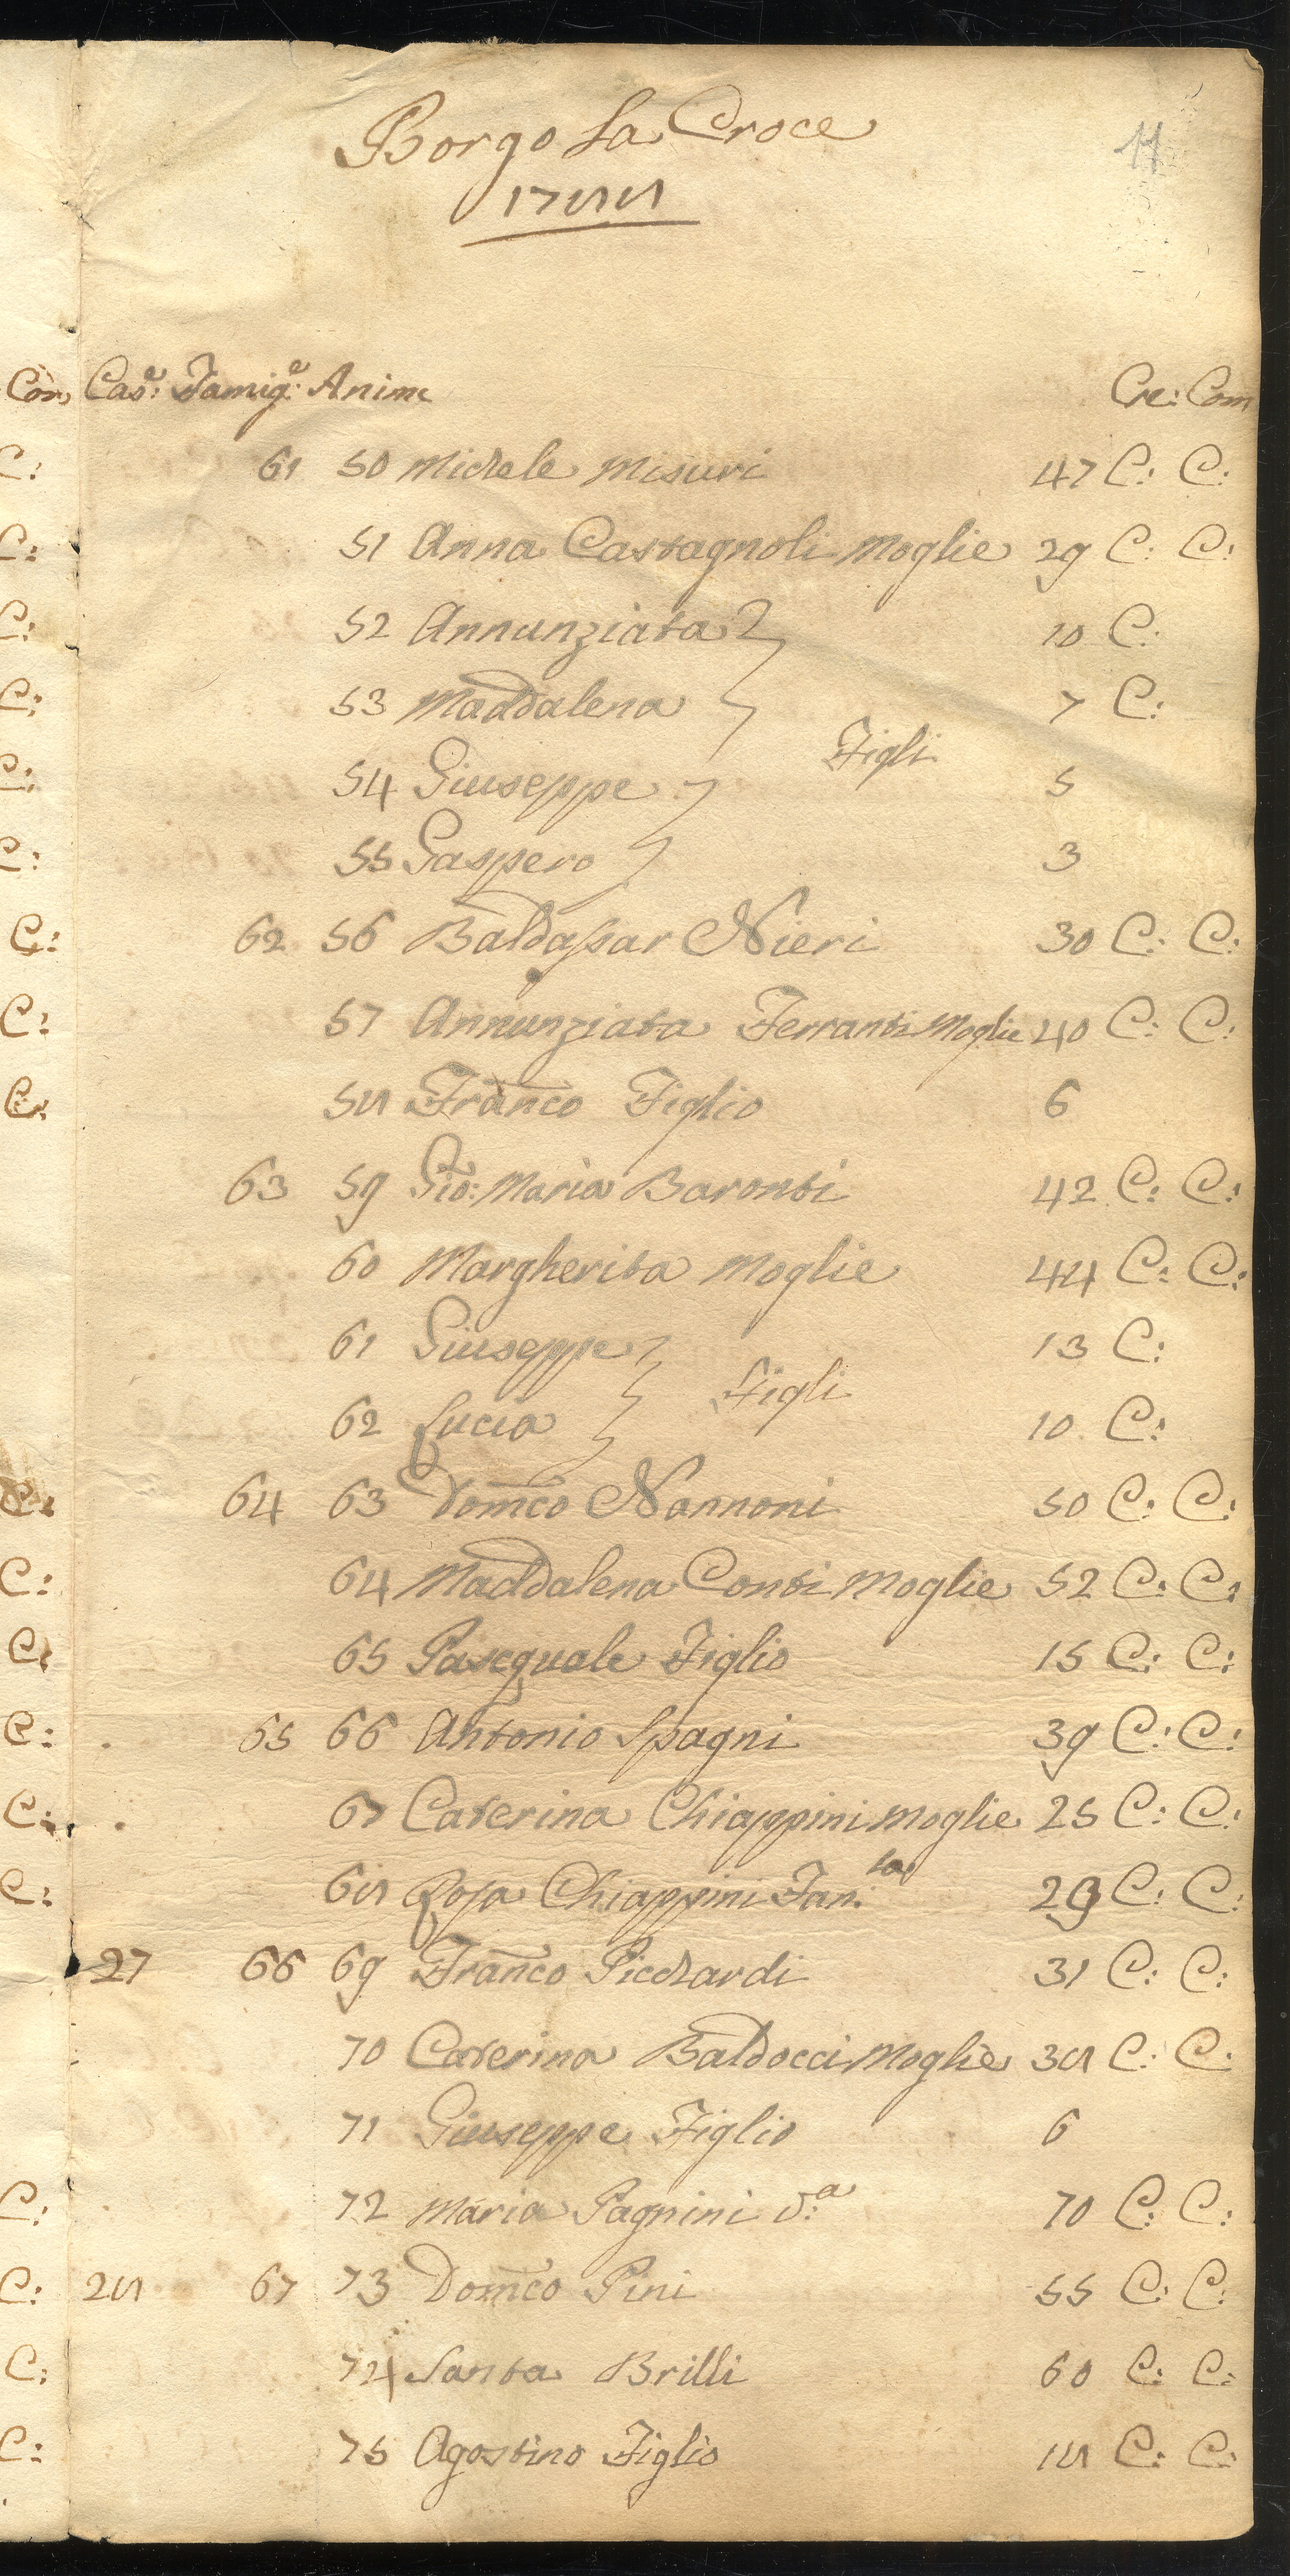 Borgo La Croce
11
1788
Con Case: Famige: Anime Cre: Com
C: 61 50 Michele Misuri 47 C: C:
C: 51 Anna Castagnoli Moglie 29 C: C:
C: 52 Annunziata 10 C:
C: 53 Maddalena 7 C:
Figli
C: 54 Giuseppe 5
C: 55 Gaspero 3
C: 62 56 Baldassar Nieri 30 C: C:
C: 57 Annunziata Ferranti Moglie 40 C: C:
C: 58 Franco Figlio 6
63 59 Gio: Maria Baronti 42 C: C:
60 Margherita Moglie 44 C: C:
61 Giuseppe 13 C:
Figli
62 Lucia 10 C:
C: 64 63 Domco Nannoni 50 C: C:
C: 64 Maddalena Conti Moglie 52 C: C:
C: 65 Pasequale Figlio 15 C: C:
C: 65 66 Antonio Spagni 39 C: C:
C: 67 Caterina Chiappini Moglie 25 C: C:
C: 68 Rosa Chiappini Fan:la 29 C: C:
27 66 69 Franco Picchardi 31 C: C:
70 Caterina Baldocci Moglie 38 C: C:
71 Giuseppe Figlio 6
C: 72 Maria Pagnini v:a 70 C: C:
C: 28 67 73 Domco Pini 55 C: C:
C: 74 Santa Brilli 60 C: C:
C: 75 Agostino Figlio 18 C: C: